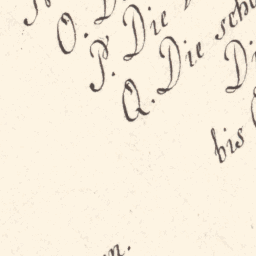 O. D
P. Die
Q. Die sch
Di
bis
n.